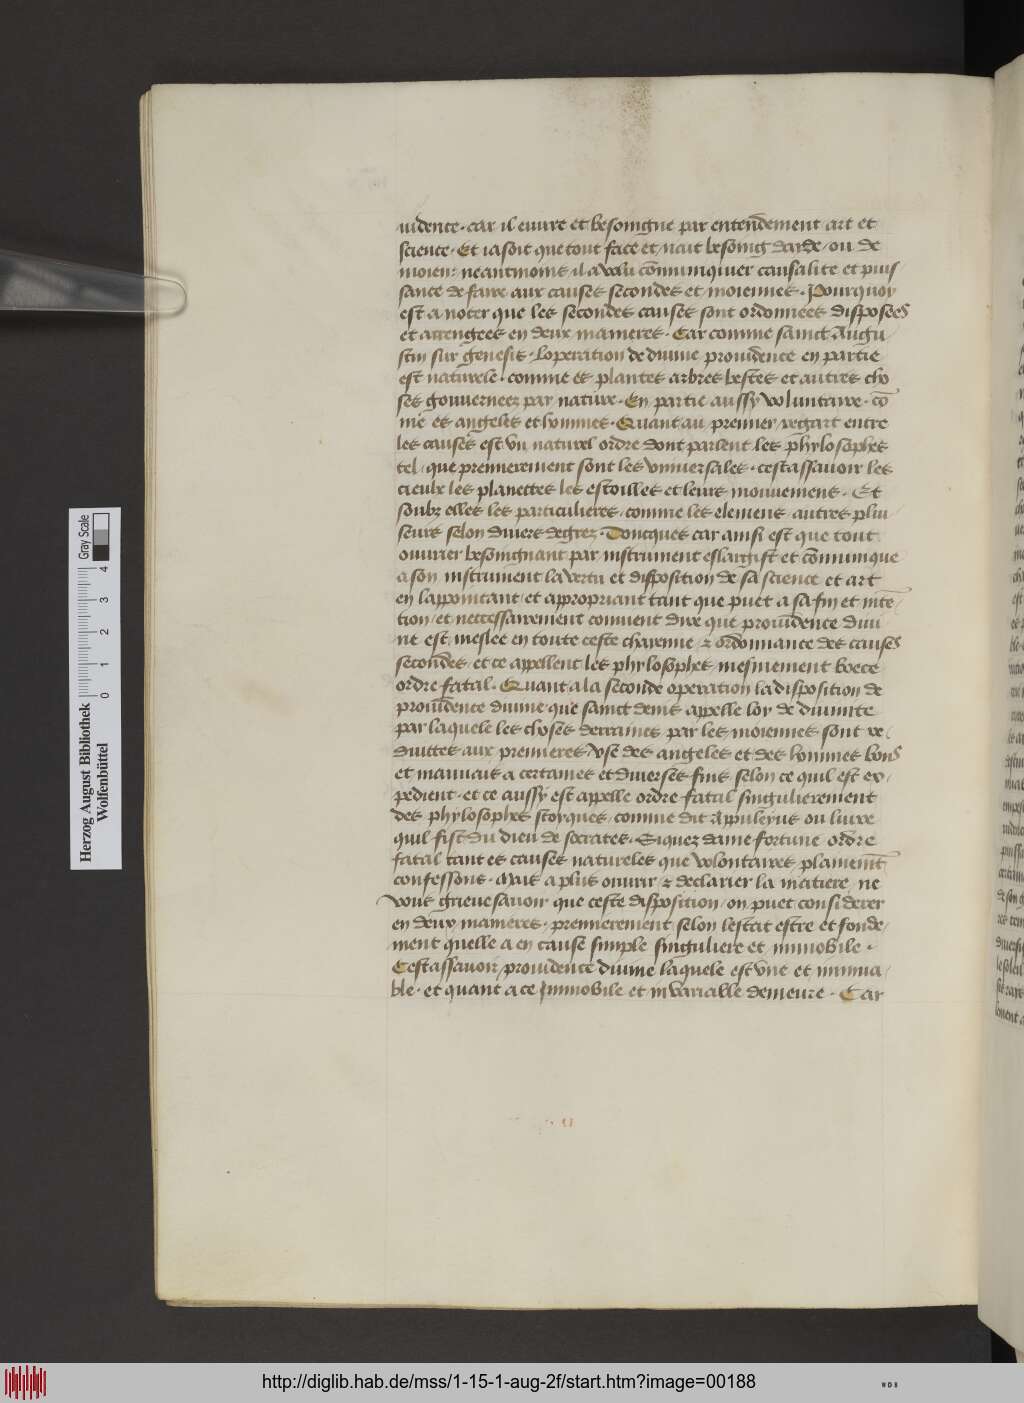 uidence · car il euure et besoingne par entendement art et
science · Et iasoit que tout face et nait besoing darde / ou de
moien / neantmoins il a volu cōmuniquier causalite et puis-
sance de faire aux causes secondes et moiennes · Pourquoy
est a noter que les secondes causes sont ordonnees disposees
et arrengees en deux manieres · Car comme sainct Augu-
stin sur genesis · Loperation de diuine prouidence en partie
est naturele · comme es plantes arbres bestes et autres cho
ses gouuernees par nature · En partie aussy voluntaire · cō
me es angeles et hommes · Quant au premier regart entre
les causes est vn naturel ordre dont parlent les phylosophes
tel / que premierement sont les vniuersales · cestassauoir les
cieulx les planettes les estoilles et leurs mouuemens · Et
soubz elles les particulieres / comme les elemens autres plu-
seurs selon diuers degrez · Doncques car ainsi est que tout
ouurier besoingnant par instrument eslargist et cōmunique
a son instrument la vertu et disposition de sa science et art
en lappointant / et appropriant tant que puet a sa fin et intē-
tion / et neccessairement conuient dire que prouidence diui
ne est meslee en toute ceste chayenne / et ordonnance des causes
secondes / et ce appellent les phylosophes mesmement boece
ordre fatal · Quant a la seconde operation la disposition de
prouidence diuine que sainct denis appelle loy de diuinite
par laquele les choses derraines par les moiennes sont re-
duittes aux premieres vse des angeles et des hommes bons
et mauuais a certaines et diuerses fins / selon ce quil est ex-
pedient / et ce aussy est appelle ordre fatal singulierement
des phylosophes stoyques / comme dit Appuleyus ou liure
quil fist du dieu de socrates · Siquez dame fortune ordre
fatal tant es causes natureles que volontaires plainemēt
confessons · Mais a plus ouurir / et declarier la matiere / ne
vous grieue sauoir que ceste disposition / on puet considerer
en deux manieres · premierement selon lestat estre et fonde-
ment quelle a en cause simple singuliere et immobile ·
Cestassauoir / prouidence diuine laquele est vne et inmua-
ble · et quant a ce Immobile et in variable demeure · Car
Herzog August Bibliothek
Wolfenbüttel
0 1 2 3 4
Gray Scale
http://diglib.hab.de/mss/1-15-1-aug-2f/start.htm?image=00188
WDB